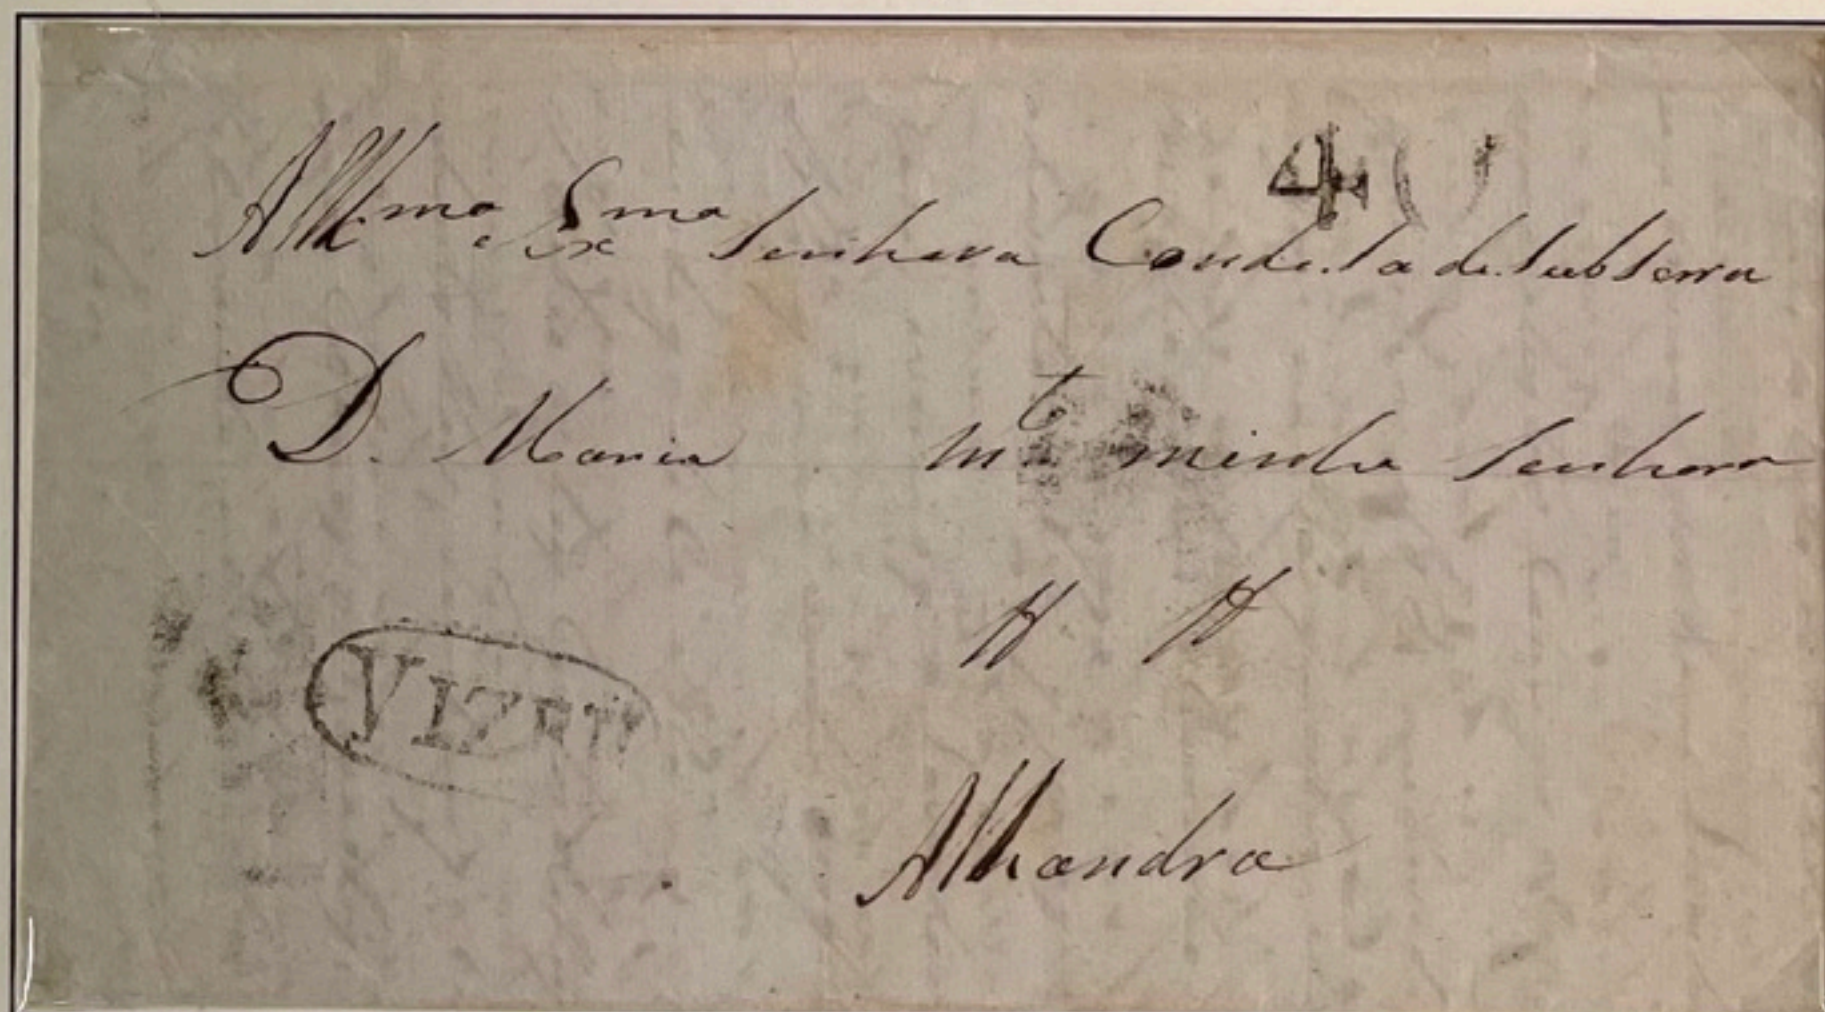 40
Illma e Exma Senhora Condesa de Subserra
D. Maria mto minha Senhora
VIZEU
Alhandra